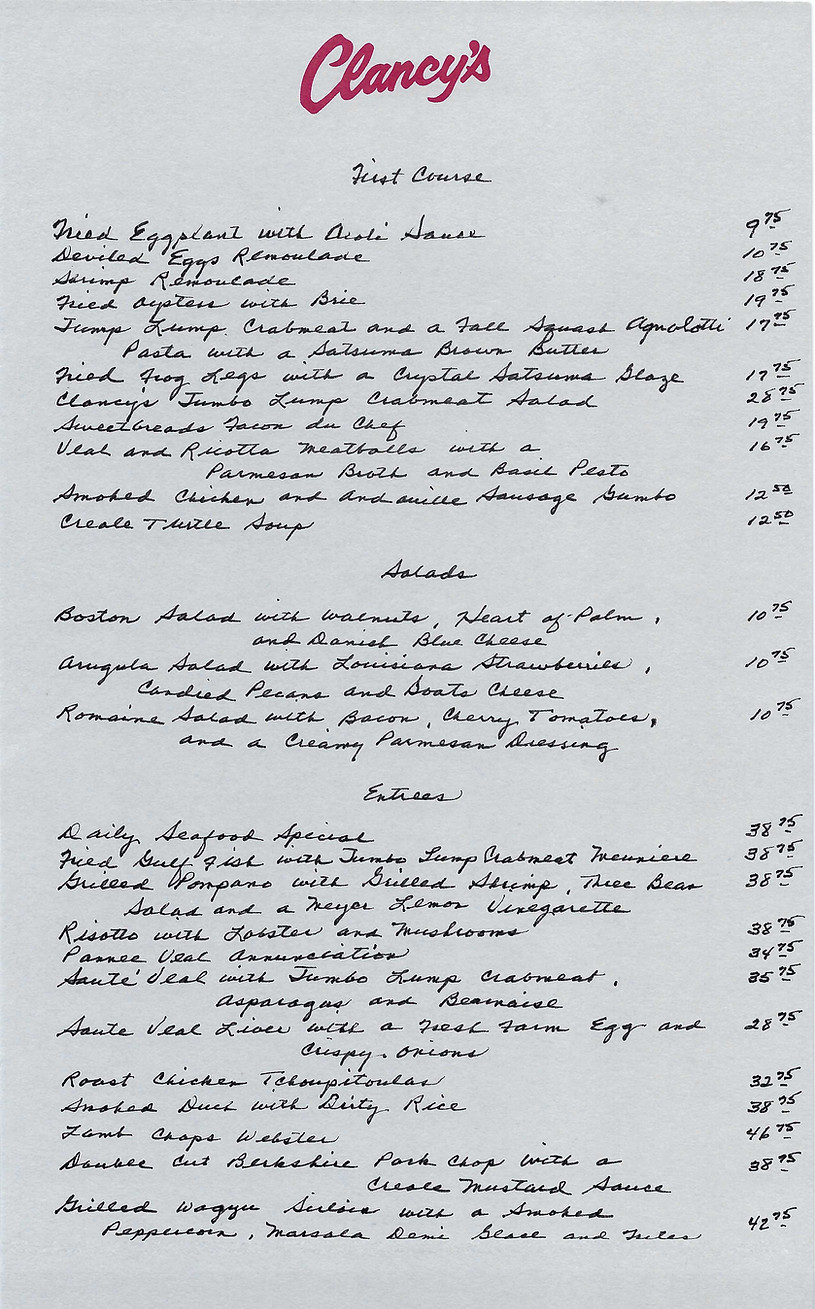 Clancy's
First Course
Fried Eggplant with Aioli Sauce 9 75
Deviled Eggs Remoulade 10 75
Shrimp Remoulade 18 75
Fried Oysters with Brie 19 75
Jump Lump Crabmeat and a Fall Squash Agnolotti 17 75
Pasta with a Satsuma Brown Butter
Fried Frog Legs with a Crystal Satsuma Glaze 17 75
Clancy's Jumbo Lump Crabmeat Salad 28 75
Sweetbreads Facon du Chef 19 75
Veal and Ricotta Meatballs with a 16 75
Parmesan Broth and Basil Pesto
Smoked Chicken and Andouille Sausage Gumbo 12 50
Creole Turtle Soup 12 50
Salads
Boston Salad with Walnuts, Heart of Palm, 10 75
and Danish Blue Cheese
Arugula Salad with Louisiana Strawberries, 10 75
Candied Pecans and Goats Cheese
Romaine Salad with Bacon, Cherry Tomatoes, 10 75
and a Creamy Parmesan Dressing
Entrees
Daily Seafood Special 38 75
Fried Gulf Fish with Jumbo Lump Crabmeat Meuniere 38 75
Grilled Pompano with Grilled Shrimp, Three Bean 38 75
Salad and a Meyer Lemon Vinegarette
Risotto with Lobster and Mushrooms 38 75
Pannee Veal Annunciation 34 75
Sauté Veal with Jumbo Lump Crabmeat, 35 75
Asparagus and Bearnaise
Saute Veal Liver with a Fresh Farm Egg and 28 75
Crispy Onions
Roast Chicken Tchoupitoulas 32 75
Smoked Duck with Dirty Rice 38 75
Lamb Chops Webster 46 75
Double Cut Berkshire Pork Chop with a 38 75
Creole Mustard Sauce
Grilled Wagyu Sirloin with a Smoked
Peppercorn, Marsala Demi Glace and Frites 42 75